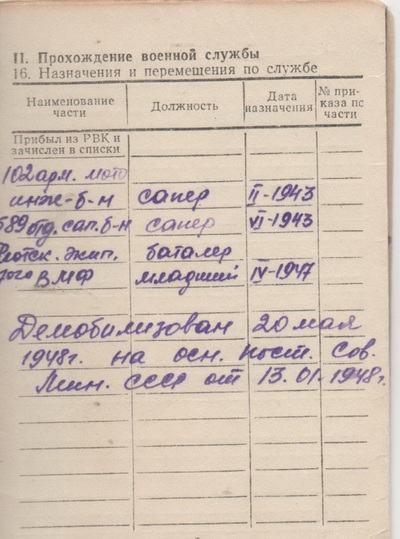 II. Прохождение военной службы
16. Назначения и перемещения по службе
Наименование части
Должность
Дата назначения
№ приказа по части
Прибыл из РВК и
зачислен в списки
102 арм. мото
инж-б-н сапер II-1943
589 отд. сап. б-н сапер VI-1943
Флотск. экип. баталер
ВМФ младший IV-1947
Демобилизован 20 мая
1948г. на осн. Пост. Сов.
Мин. СССР от 13.01.1948г.